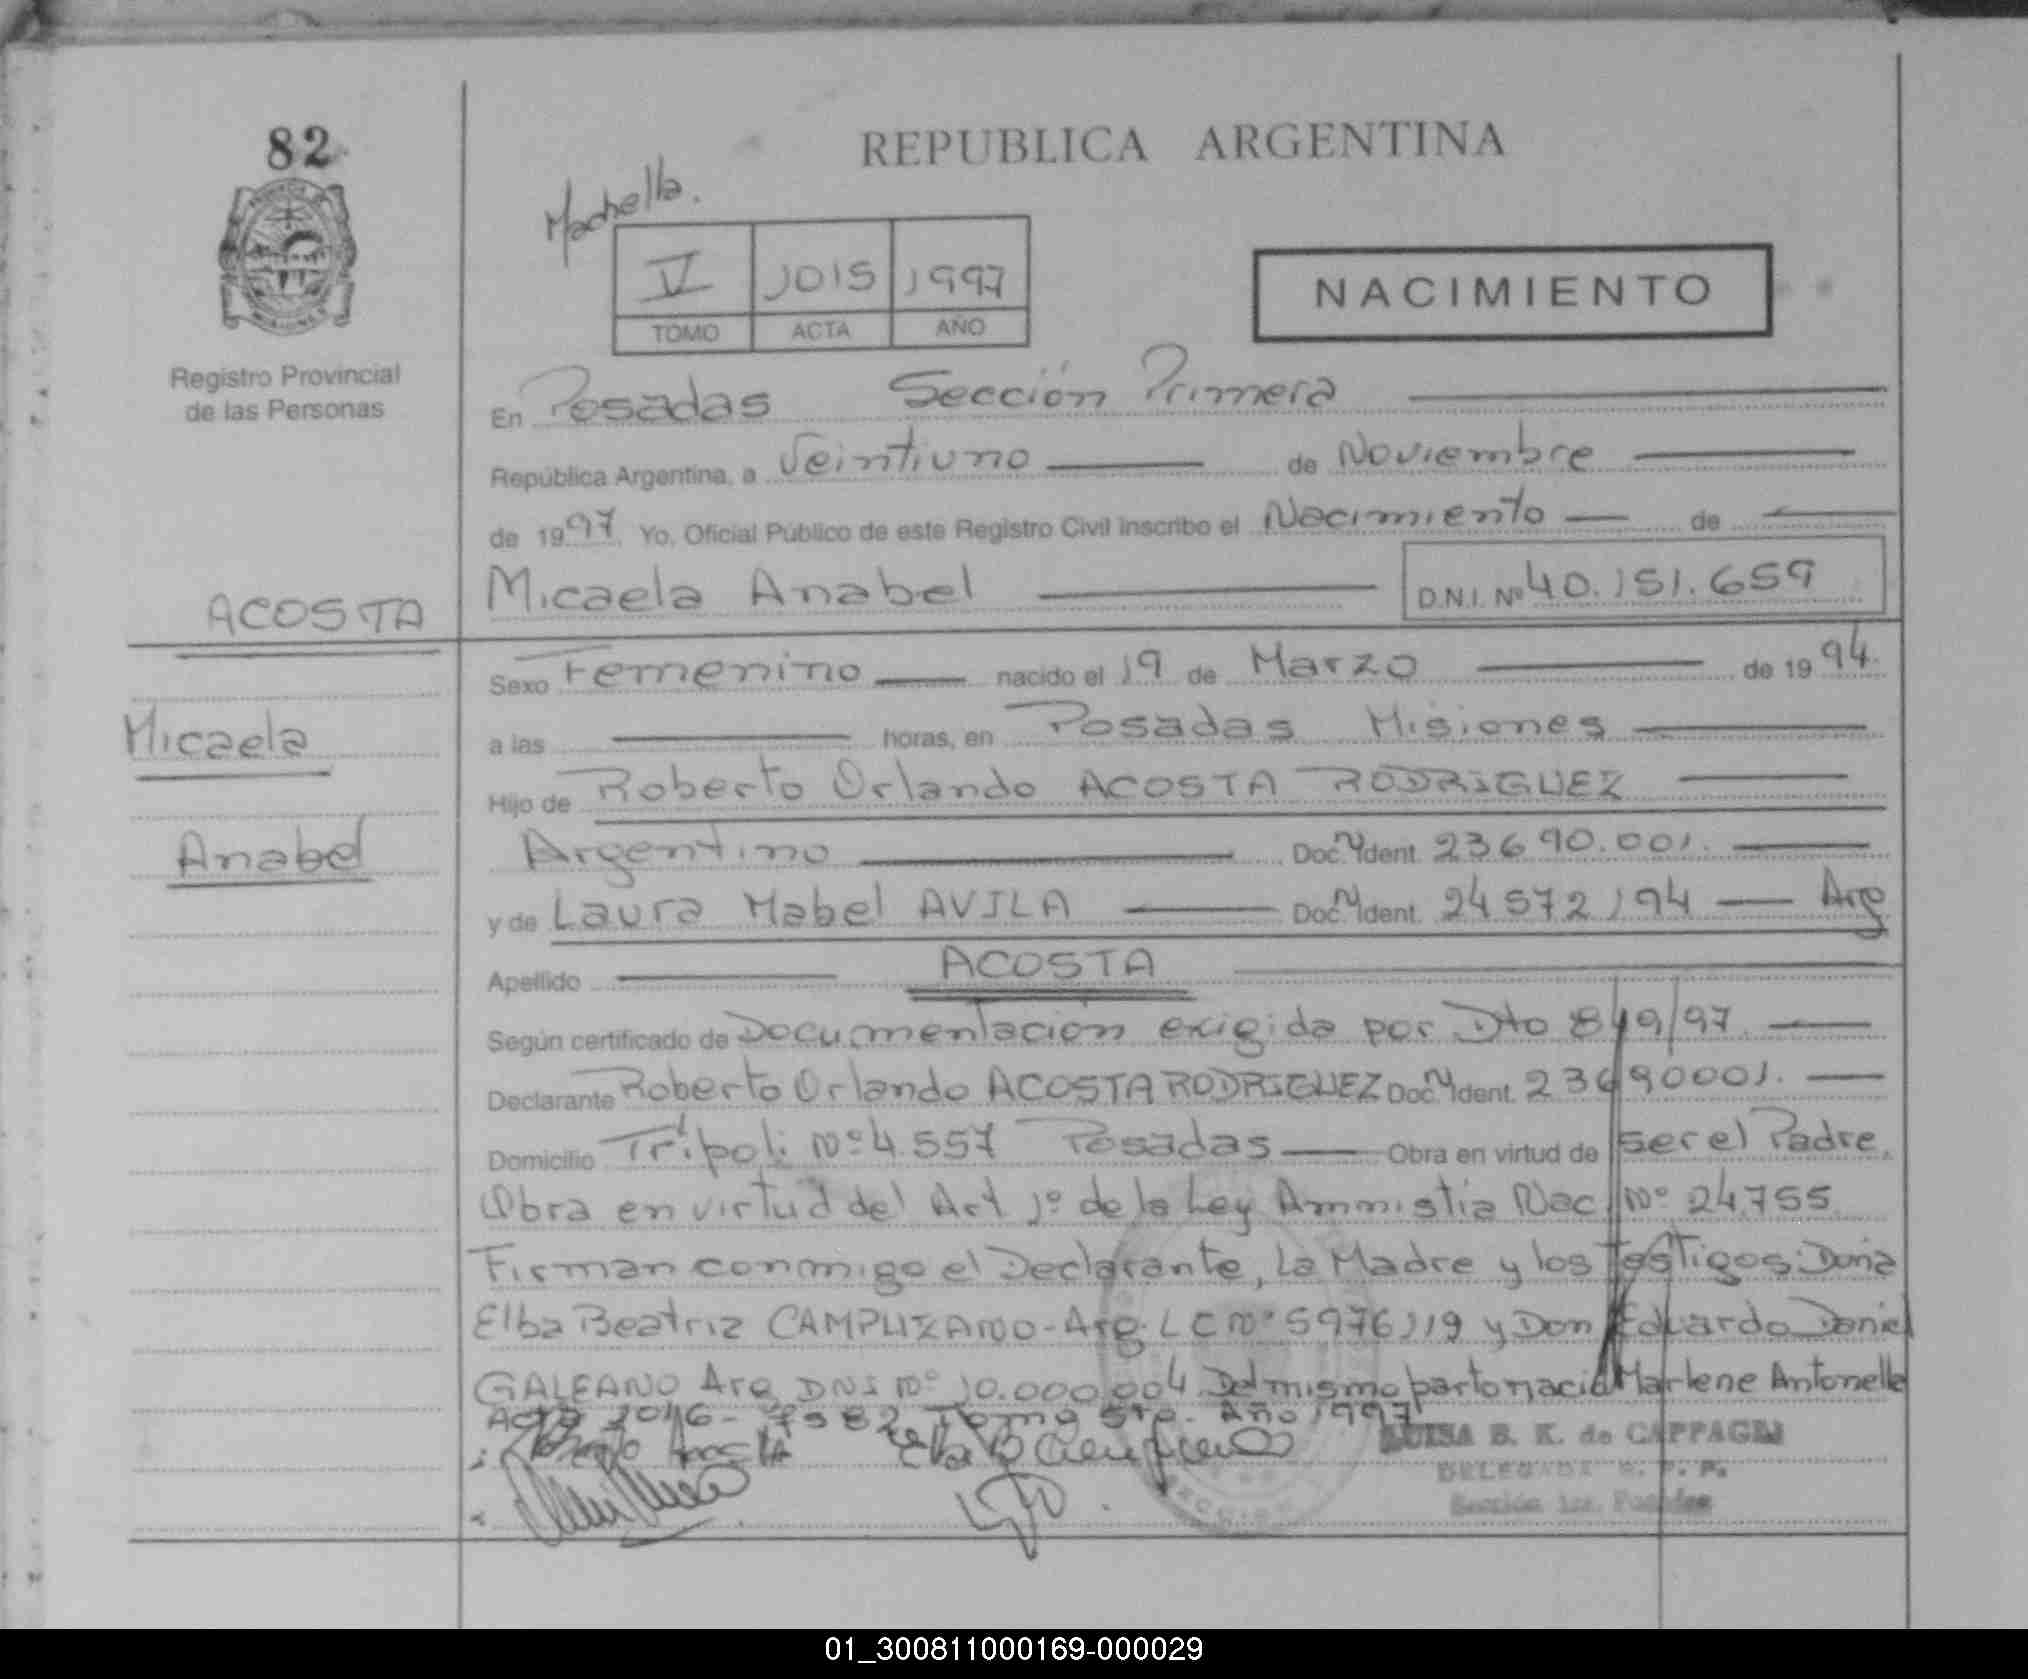 82
REPUBLICA ARGENTINA
V 1015 1997
TOMO ACTA AÑO
NACIMIENTO
Registro Provincial
de las Personas
En Posadas Sección Primera
República Argentina, a Veintiuno de Noviembre
de 1997 Yo, Oficial Público de este Registro Civil inscribo el Nacimiento de
ACOSTA
Micaela Anabel D.N.I. Nº 40.151.659
Sexo Femenino nacido el 19 de Marzo de 1994.
Micaela
a las horas, en Posadas Misiones
Hijo de Roberto Orlando ACOSTA RODRIGUEZ
Anabel
Argentino Doc. Ident. 23690.001.
y de Laura Mabel AVILA Doc. Ident. 24572194 Arg
Apellido ACOSTA
Según certificado de Documentación exigida por Dto 849/97
Declarante Roberto Orlando ACOSTA RODRIGUEZ Doc. Ident. 23690001.
Domicilio Trípoli Nº 4.557 Posadas Obra en virtud de ser el Padre.
Obra en virtud del Art 1º de la Ley Ammistia Nac Nº 24.755
Firman conmigo el Declarante, la Madre y los Testigos: Doña
Elba Beatriz CAMPUZANO - Arg. LC Nº 5976119 y Don Eduardo Daniel
GALEANO Arg DNI Nº 10.000.004 Del mismo parto nació Marlene Antonella
Acta 2016 - Tomo 5to. Año 1997
LUISA B. K. de CAPPAGLI
DELEGADA R. P. P.
Sección 1ra. Posadas
01_300811000169-000029